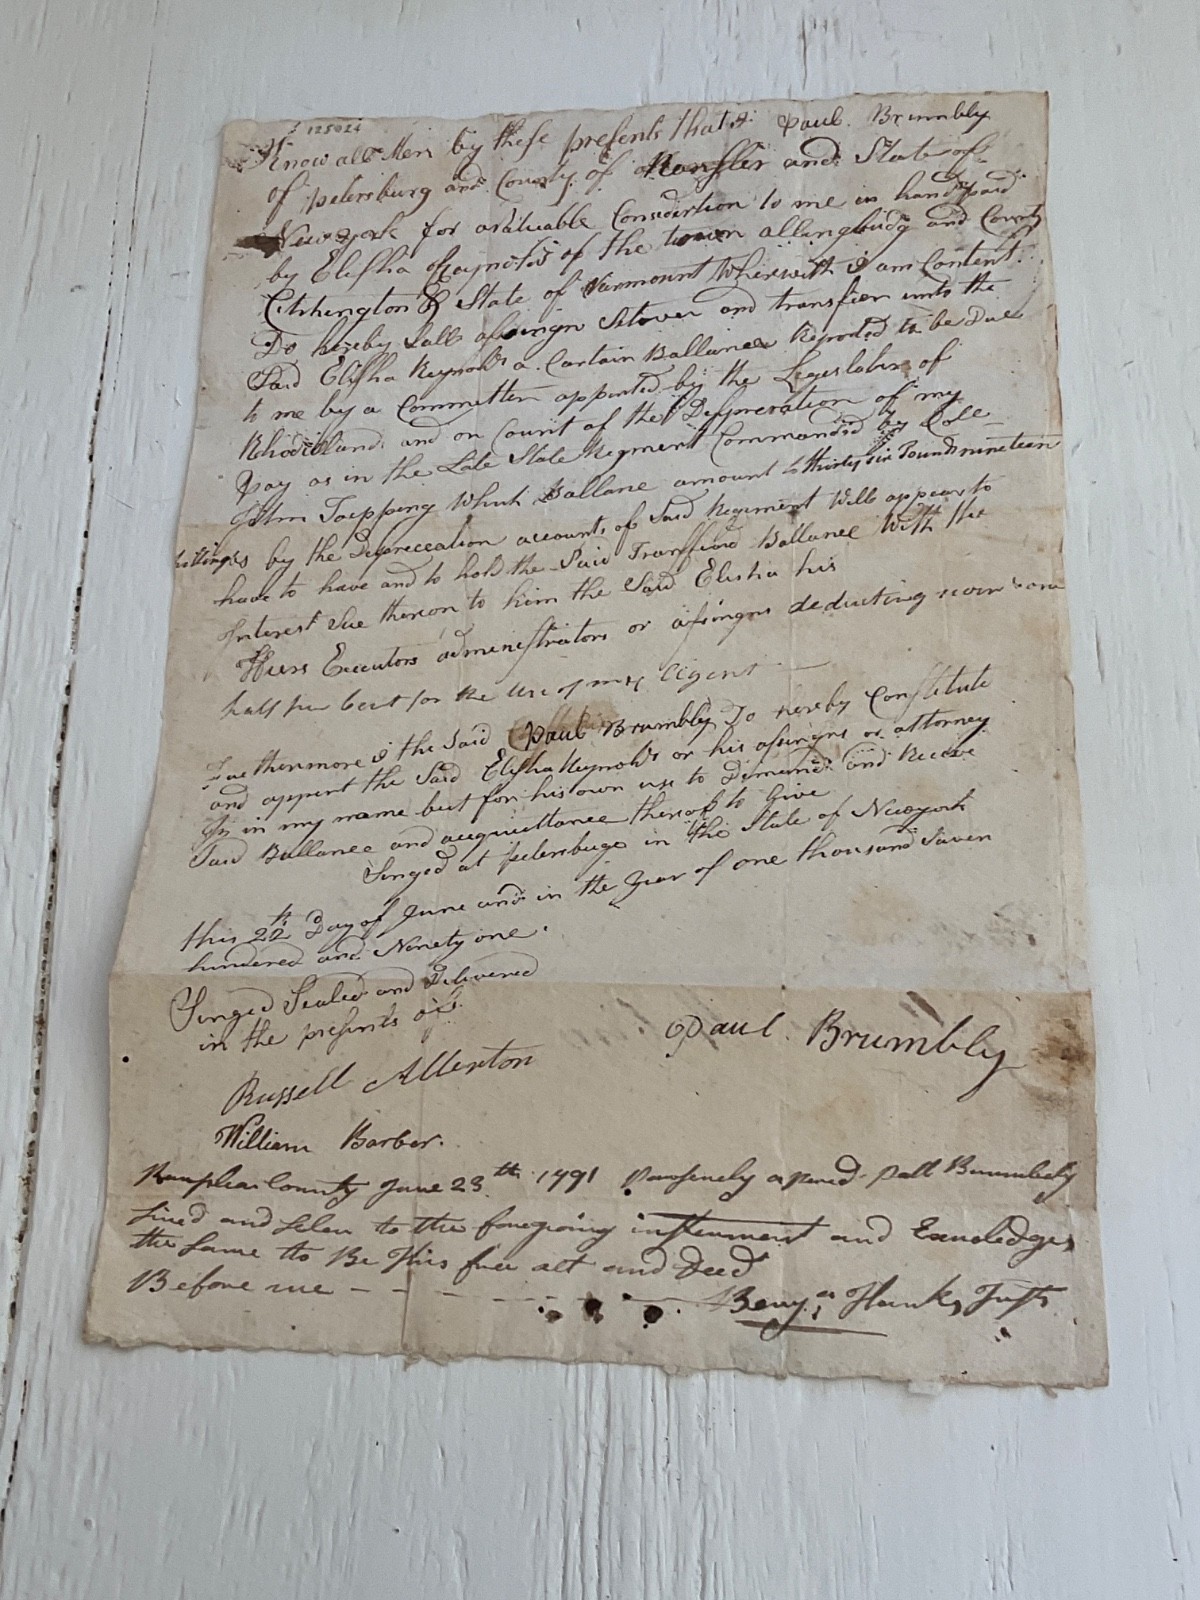 125024
Know all Men by these presents that I Paul Brumbly
of petersburg and County of Ransler and State of
Newyork for a Valuable Considirtion to me in hand paid
by Elisha Reynolds of the town and County
State of Varmount Wherewith I am Content
Do hereby Sall assingn Setover and transfier unto the
Said Elisha Reynolds a Cartain Ballance Reported to be Due
to me by a Committen appinted by the Legeslature of
Rhodisland and on Count of the Depreration of my
pay as in the Late State Regment Commanded by Coll
John Topping Which Ballane amount to thirty six Pounds nineteen
by the Depreceation accounts of Said Regiment Will appear to
have to have and to hold the Said Transfired Ballance With the
Interest Due thereon to him the Said Elisha his
Heirs Executors admenistrators or assingns deducting
half per Cent for the Use of my Agent
Furthermore I the Said Paul Brumbly Do hereby Constitute
and appint the Said Elisha Reynolds or his assingns or attorney
in my name but for his own use to Demand and Receve
Said Ballance and acquittance thereof to Give
Singed at petersbugs in the State of Newyork
this 22th Day of June and in the year of one thousand Saven
hundered and Ninety one.
Singed Sealed and Delivered
in the presents off
Paul Brumbly
Russell Allerton
William Barber.
County June 23th 1791 apered Pall Brumbely
Sined and to the foregoing instrument and
the Same to Be This free act and Deed
Before me - - - - - - - Benjn Hanks Just